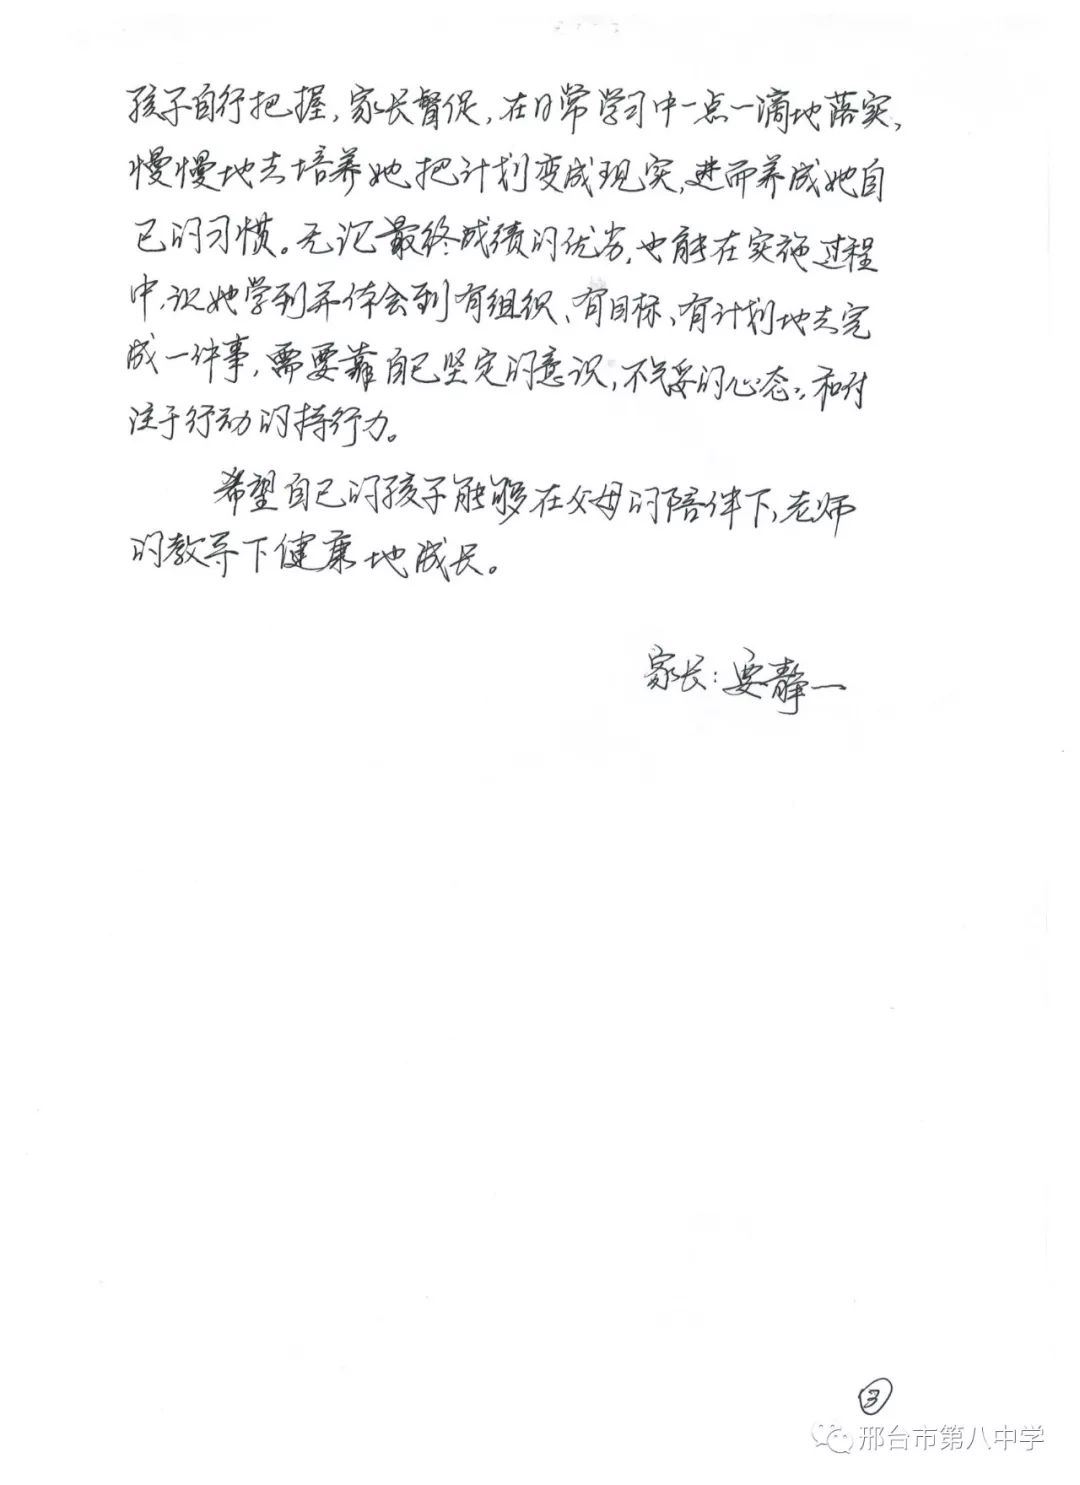 孩子自行把握，家长督促，在日常学习中一点一滴地落实，
慢慢地去培养她把计划变成现实，进而养成她自
己的习惯。无论最终成绩的优劣，也能在实施过程
中，让她学到并体会到有组织、有目标、有计划地去完
成一件事，需要靠自己坚定的意识，不气妥的心态，和付
注于行动的持行力。
希望自己的孩子能够在父母的陪伴下，老师
的教导下健康地成长。
家长：要静一
3
邢台市第八中学